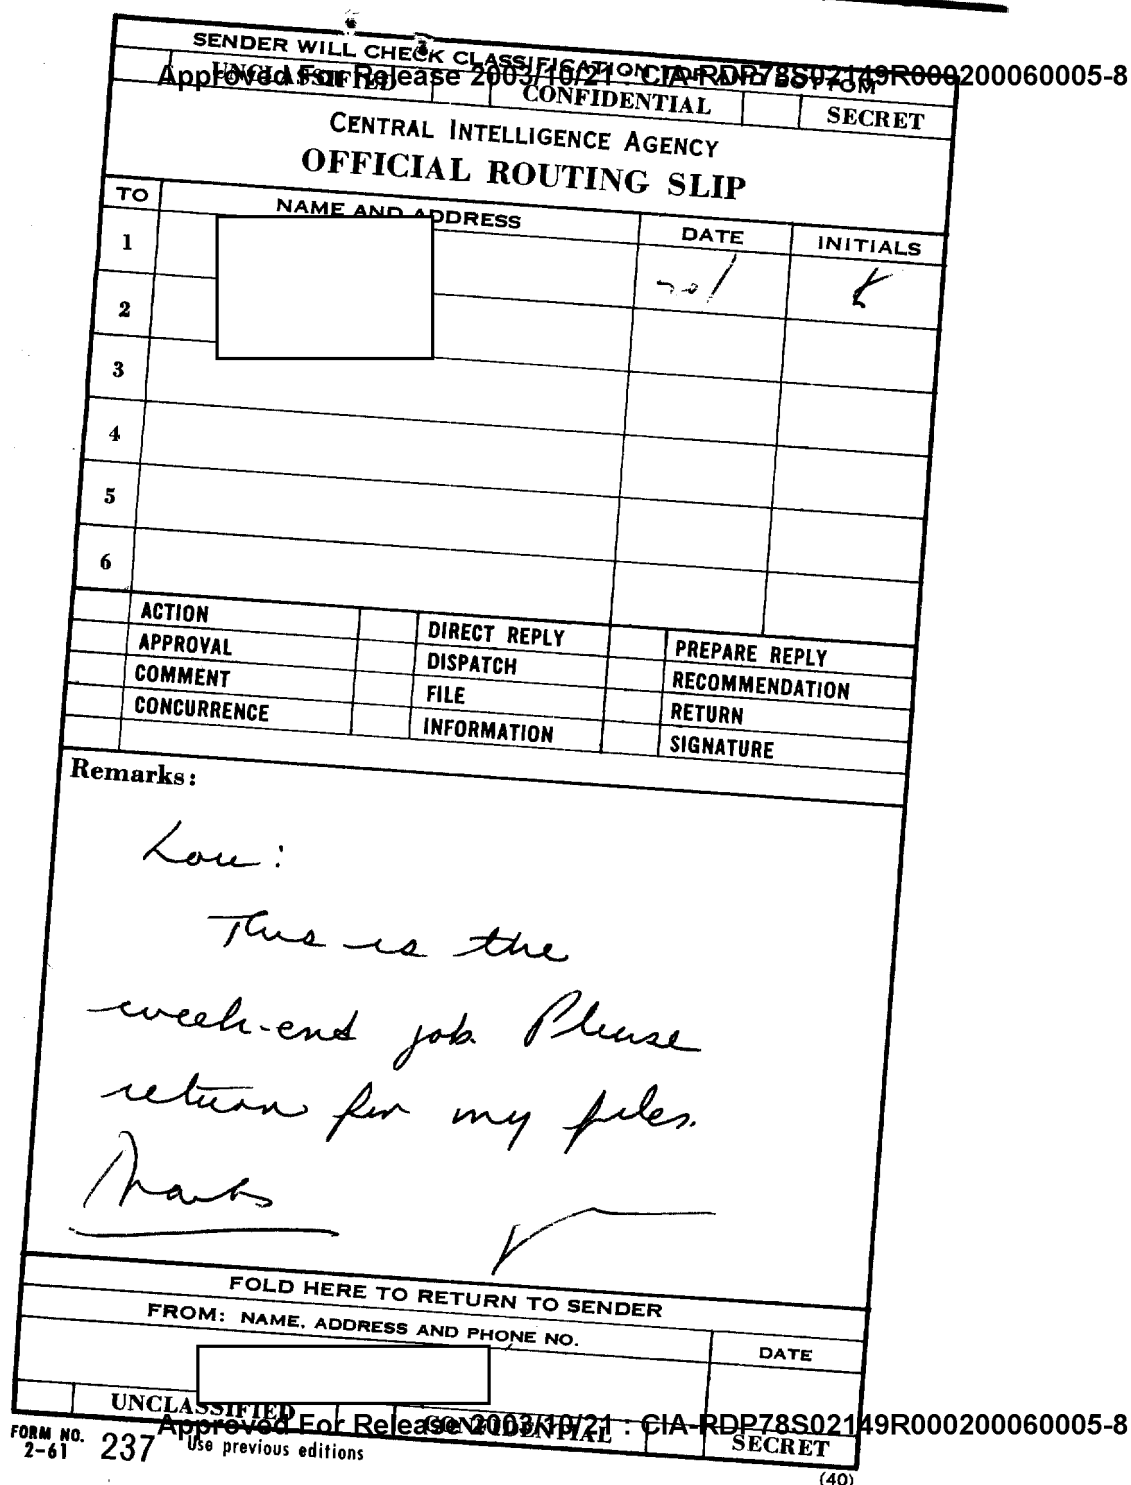 SENDER WILL CHECK CLASSIFICATION TOP AND BOTTOM
Approved For Release 2003/10/21 : CIA-RDP78S02149R000200060005-8
UNCLASSIFIED CONFIDENTIAL SECRET
CENTRAL INTELLIGENCE AGENCY
OFFICIAL ROUTING SLIP
TO NAME AND ADDRESS DATE INITIALS
1
2
3
4
5
6
ACTION DIRECT REPLY PREPARE REPLY
APPROVAL DISPATCH RECOMMENDATION
COMMENT FILE RETURN
CONCURRENCE INFORMATION SIGNATURE
Remarks:
Lou:
This is the
week-end job. Please
return for my files.
Thanks
FOLD HERE TO RETURN TO SENDER
FROM: NAME, ADDRESS AND PHONE NO. DATE
UNCLASSIFIED CONFIDENTIAL SECRET
Approved For Release 2003/10/21 : CIA-RDP78S02149R000200060005-8
FORM NO. 237 Use previous editions
2-61
(40)